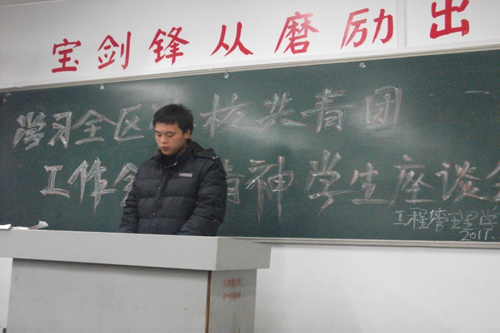 宝剑锋从磨励出
学习全区 校共青团
工作会 精神学生座谈会
工程管理学
2011.